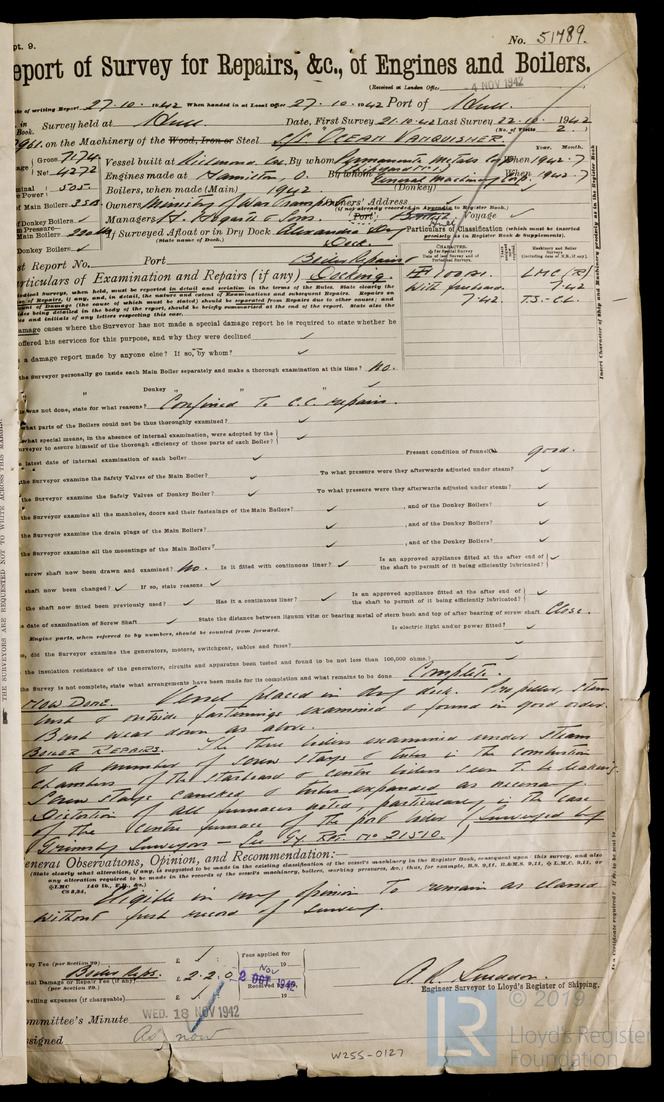 pt. 9.
No. 51789.
eport of Survey for Repairs, &c., of Engines and Boilers.
(Received at London Office 4 NOV 1942
te of writing Report 27.10.1942 When handed in at Local Office 27.10.1942 Port of Hull.
in Book. Survey held at Hull. Date, First Survey 21.10.42 Last Survey 22.10.1942
(No. of Visits 2.
on the Machinery of the Wood, Iron or Steel S/S "OCEAN VANQUISHER"
Gross 7174 Vessel built at Richmond Cal. By whom Permanente Metals When 1942.7
Net 4272 Engines made at Hamilton O. By whom General Machinery Corp. When 1942.7
Year. Month.
Power 505 Boilers, when made (Main) 1942 (Donkey)
Main Boilers Owners Ministry of War Transport Owners' Address
(if not already recorded in Appendix to Register Book.)
Donkey Boilers Managers H. Hogarth & Sons. Port Voyage
Pressure—
Main Boilers If Surveyed Afloat or in Dry Dock Alexandra Dry Dock.
(State name of Dock.)
Particulars of Classification (which must be inserted precisely as in Register Book & Supplements).
Donkey Boilers
st Report No. Port Boiler Repairs
articulars of Examination and Repairs (if any) Docking.
100A1. LMC (R) 7.42
With freeboard 7.42 TS-CL.
amage cases where the Surveyor has not made a special damage report he is required to state whether he
offered his services for this purpose, and why they were declined
a damage report made by anyone else? If so, by whom?
the Surveyor personally go inside each Main Boiler separately and make a thorough examination at this time? No.
Donkey " " "
was not done, state for what reasons? Confined to C.C. repairs.
what parts of the Boilers could not be thus thoroughly examined?
what special means, in the absence of internal examination, were adopted by the
urveyor to assure himself of the thorough efficiency of those parts of each Boiler?
latest date of internal examination of each boiler Present condition of funnel(s) good.
the Surveyor examine the Safety Valves of the Main Boiler? To what pressure were they afterwards adjusted under steam?
the Surveyor examine the Safety Valves of Donkey Boiler? To what pressure were they afterwards adjusted under steam?
the Surveyor examine all the manholes, doors and their fastenings of the Main Boilers? , and of the Donkey Boilers?
the Surveyor examine the drain plugs of the Main Boilers? , and of the Donkey Boilers?
the Surveyor examine all the mountings of the Main Boilers? , and of the Donkey Boilers?
screw shaft now been drawn and examined? No. Is it fitted with continuous liner? Is an approved appliance fitted at the after end of the shaft to permit of it being efficiently lubricated?
shaft now been changed? If so, state reasons
the shaft now fitted been previously used? Has it a continuous liner? Is an approved appliance fitted at the after end of the shaft to permit of it being efficiently lubricated?
date of examination of Screw Shaft State the distance between lignum vitæ or bearing metal of stern bush and top of after bearing of screw shaft Close.
Engine parts, when referred to by numbers, should be counted from forward. Is electric light and/or power fitted?
so, did the Surveyor examine the generators, motors, switchgear, cables and fuses?
the insulation resistance of the generators, circuits and apparatus been tested and found to be not less than 100,000 ohms?
the Survey is not complete, state what arrangements have been made for its completion and what remains to be done Complete.
NOW DONE. Vessel placed in dry dock. Propeller, stern
bush & outside fastenings examined & found in good order.
Bush wear down as above.
BOILER REPAIRS. The three boilers examined under steam
& a number of screw stays & tubes in the combustion
chambers of the starboard & centre boilers seen to be leaking.
Screw stays caulked & tubes expanded as necessary.
Distortion of all furnaces noted, particularly in the case
of the centre furnace of the port boiler (Surveyed by
Grimsby Surveyors — See Gy. Rpt. No 21510.)
eneral Observations, Opinion, and Recommendation:—
(State clearly what alteration, if any, is suggested to be made in the existing classification of the vessel's machinery in the Register Book, consequent upon this survey, and also
Eligible in my opinion to remain as classed
without fresh record of survey.
vey Fee (per Section 29) £ Fees applied for
Boiler Reps.
cial Damage or Repair Fee (if any) £ 2.2.0
(per Section 29.)
Nov
2 OCT 1942
Received by me,
19
velling expenses (if chargeable) £
Engineer Surveyor to Lloyd's Register of Shipping.
ommittee's Minute WED. 18 NOV 1942
ssigned As now
W255-0127
THE SURVEYORS ARE REQUESTED NOT TO WRITE ACROSS THIS MARGIN.
Insert Character of Ship and Machinery precisely as in the Register Book
LR
© 2019
Lloyd's Register
Foundation